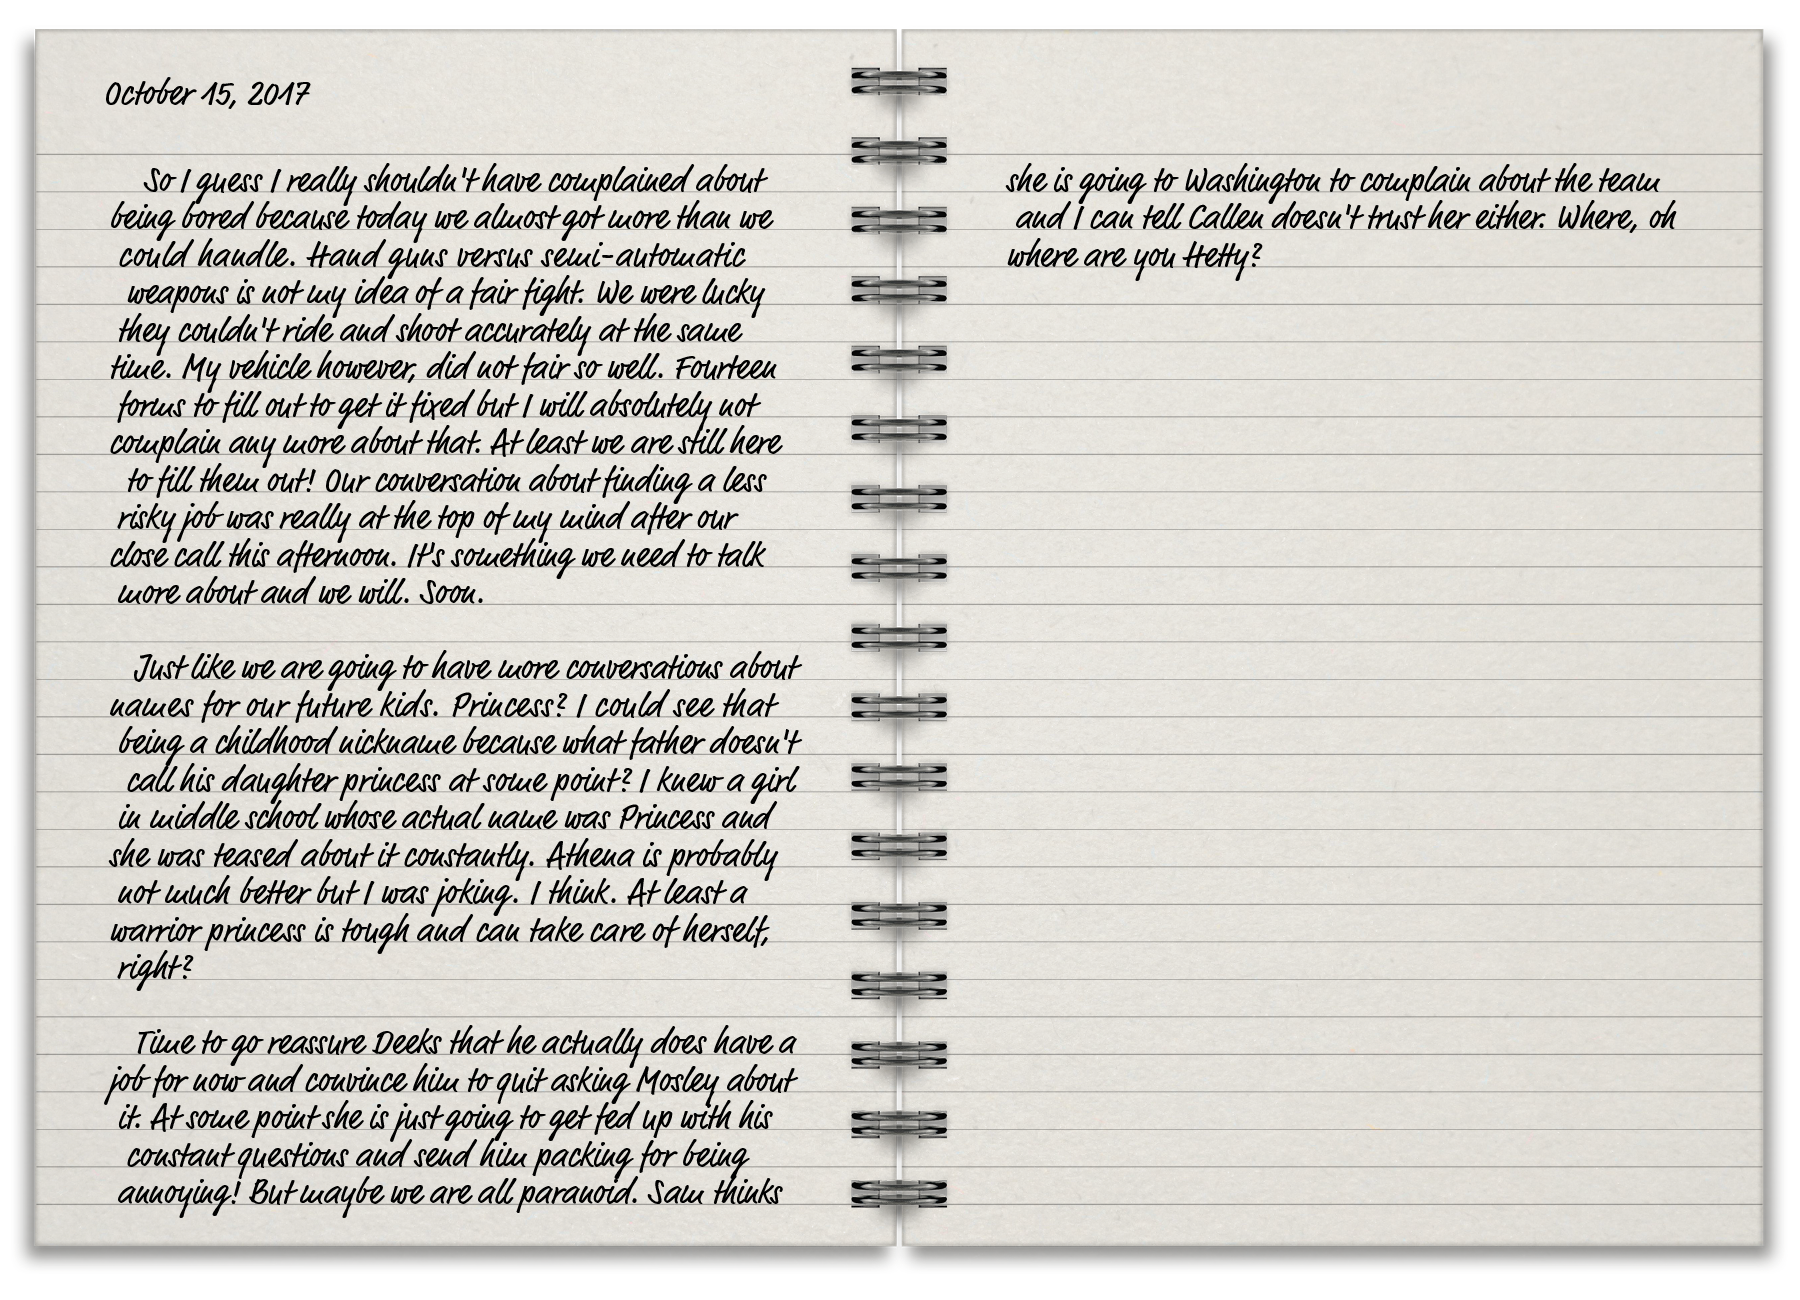 October 15, 2017
So I guess I really shouldn't have complained about
being bored because today we almost got more than we
could handle. Hand guns versus semi-automatic
weapons is not my idea of a fair fight. We were lucky
they couldn't ride and shoot accurately at the same
time. My vehicle however, did not fair so well. Fourteen
forms to fill out to get it fixed but I will absolutely not
complain any more about that. At least we are still here
to fill them out! Our conversation about finding a less
risky job was really at the top of my mind after our
close call this afternoon. It's something we need to talk
more about and we will. Soon.
Just like we are going to have more conversations about
names for our future kids. Princess? I could see that
being a childhood nickname because what father doesn't
call his daughter princess at some point? I knew a girl
in middle school whose actual name was Princess and
she was teased about it constantly. Athena is probably
not much better but I was joking. I think. At least a
warrior princess is tough and can take care of herself,
right?
Time to go reassure Deeks that he actually does have a
job for now and convince him to quit asking Mosley about
it. At some point she is just going to get fed up with his
constant questions and send him packing for being
annoying! But maybe we are all paranoid. Sam thinks
she is going to Washington to complain about the team
and I can tell Callen doesn't trust her either. Where, oh
where are you Hetty?